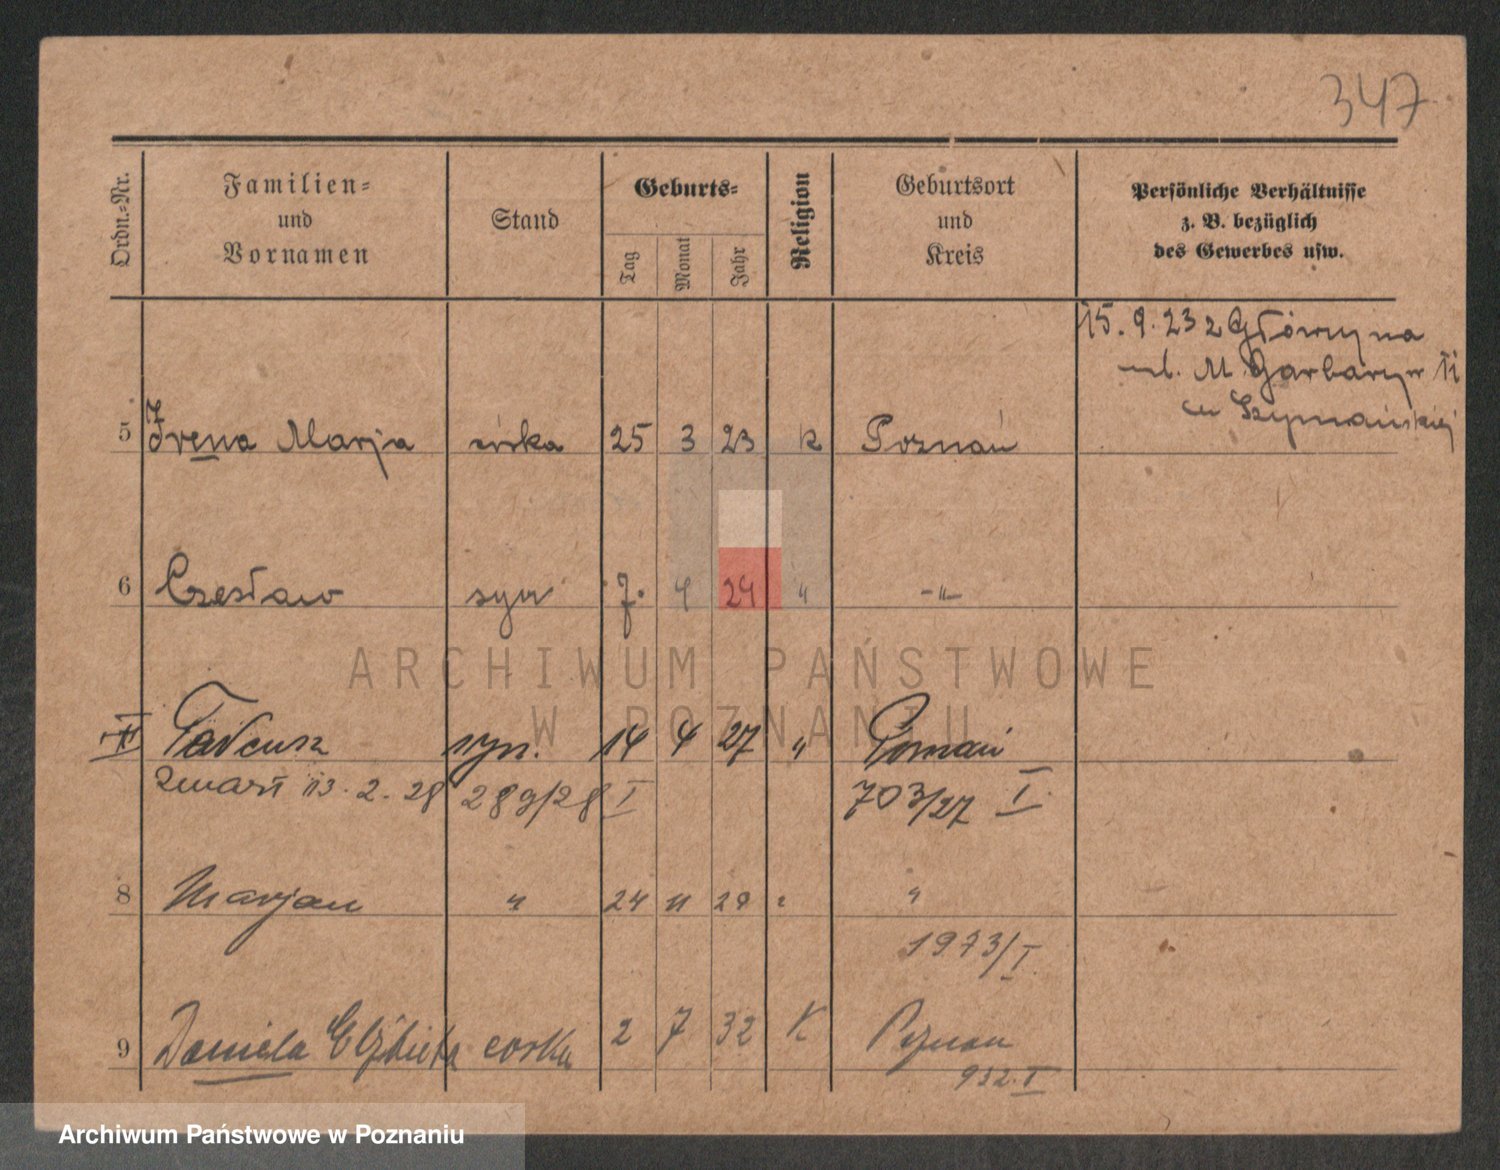 347
Ordn.-Nr.
Familien-
und
Vornamen
Stand
Geburts-
Tag
Monat
Jahr
Religion
Geburtsort
und
Kreis
Persönliche Verhältnisse
z. B. bezüglich
des Gewerbes usw.
15. 9. 23 z Główny na
ul. M Garbary
u Szymańskiej
5 Irena Marja córka 25 3 23 k Poznań
6 Czesław syn 7. 4 24 " -"-
Tadeusz syn. 14 4 27 " Poznań
zmarł 13. 2. 28 289/28 I 703/27 I
8 Marjan " 24 11 29 " "
1973/I
9 Daniela Elżbieta córka 2 7 32 K Poznań
932. I
ARCHIWUM PAŃSTWOWE
W POZNANIU
Archiwum Państwowe w Poznaniu